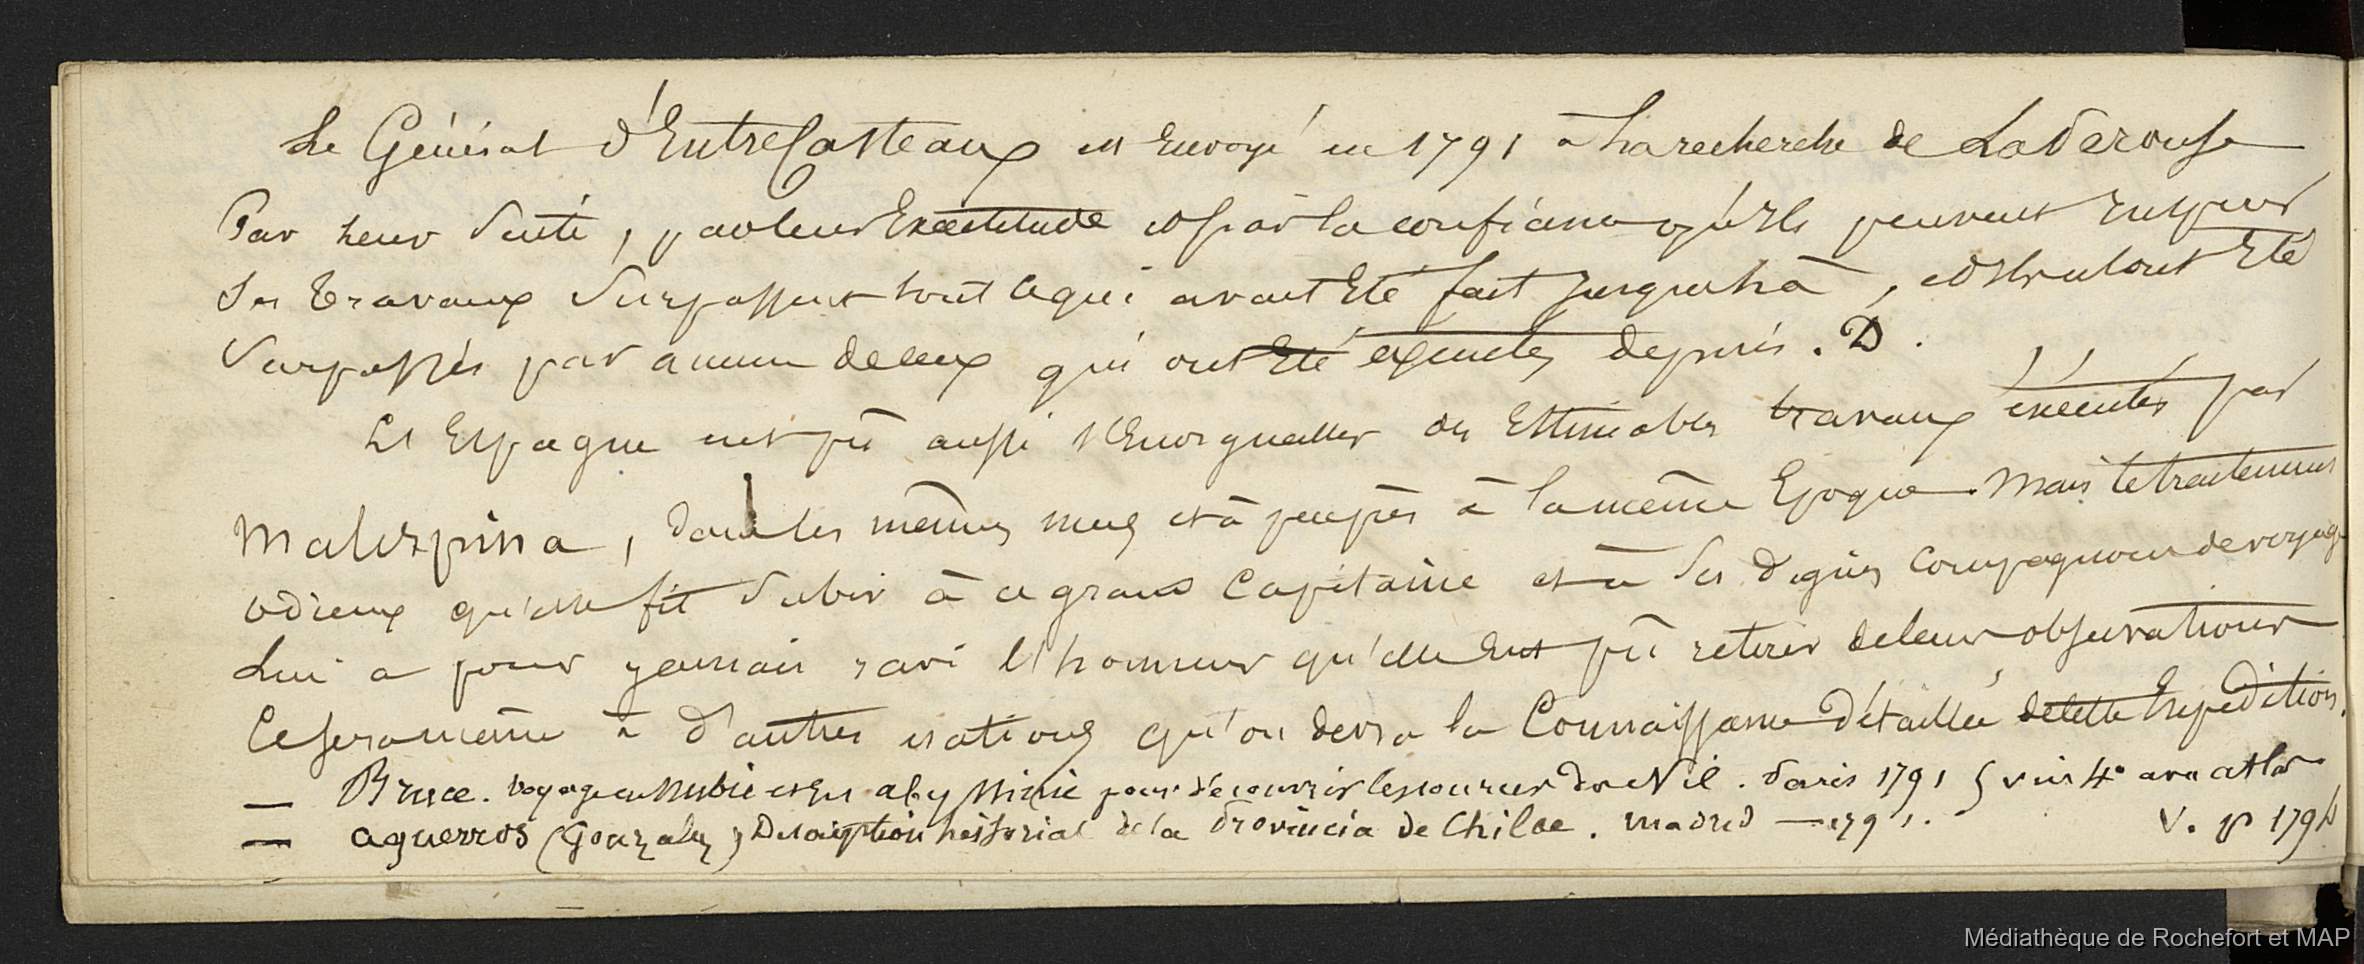 Le Général d'EntreCasteaux est Envoyé en 1791 à La recherche de LaPerouse
Par leur Vérité, par leur Exactitude et par la confiance qu'Ils peuvent Inspirer
Ses Travaux Surpassent tout ce qui avait Eté fait Jusques là, et Ils n'ont Eté
Surpassés par aucun de ceux qui ont Eté exécutés depuis. D.
L'Espagne eut pû aussi s'Enorgueillir des Estimables travaux éxécutés par
Malespina, dans les mêmes mers et à peuprès à la même Epoque. Mais le traitement
odieux qu'elle fit Subir à ce grand Capitaine et à Ses dignes Compagnons de voyage
Lui a pour jamais ravi l'honneur qu'elle Eut pû retirer de leurs observations
Ce sera même à d'autres nations qu'on devra la Connaissance Détaillée de cette Expédition.
— Bruce. Voyage en Nubie et En abyssinie pour découvrir les sources du Nil. Paris 1791 5 v in 4° avec atlas
— aguerros (Gonzalez) Descriptión historial de la Provincia de Chiloe. Madrid — 1791.
V. p 1794